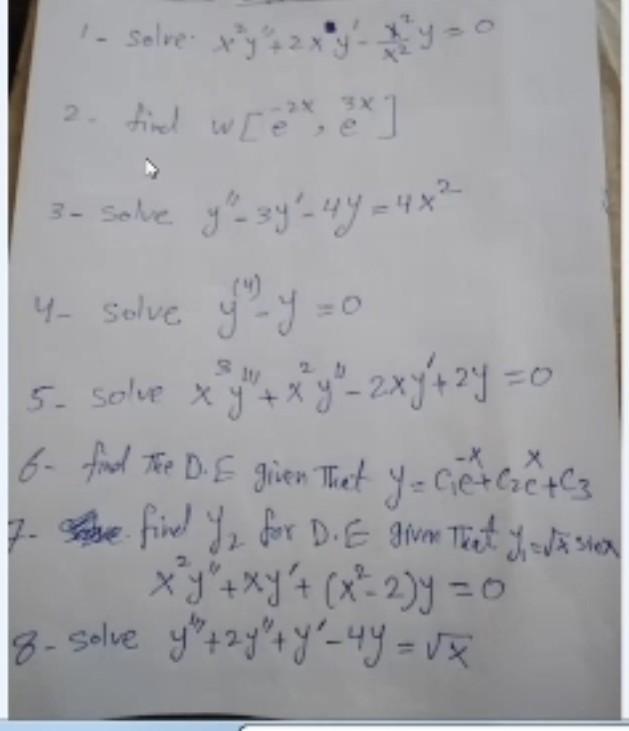 1- solve x²y''+2xy'-x²/x² y=0
2- find w[e^-2x, e^3x]
3- solve y''-3y'-4y=4x²
4- solve y^(4)-y=0
5- solve x³y'''+x²y''-2xy'+2y=0
6- find The D.E given That y=C₁e^-x+C₂e^x+C₃
7- find y₂ for D.E given That y₁=√x sinx
x²y''+xy'+(x²-2)y=0
8- solve y'''+2y''+y'-4y=√x